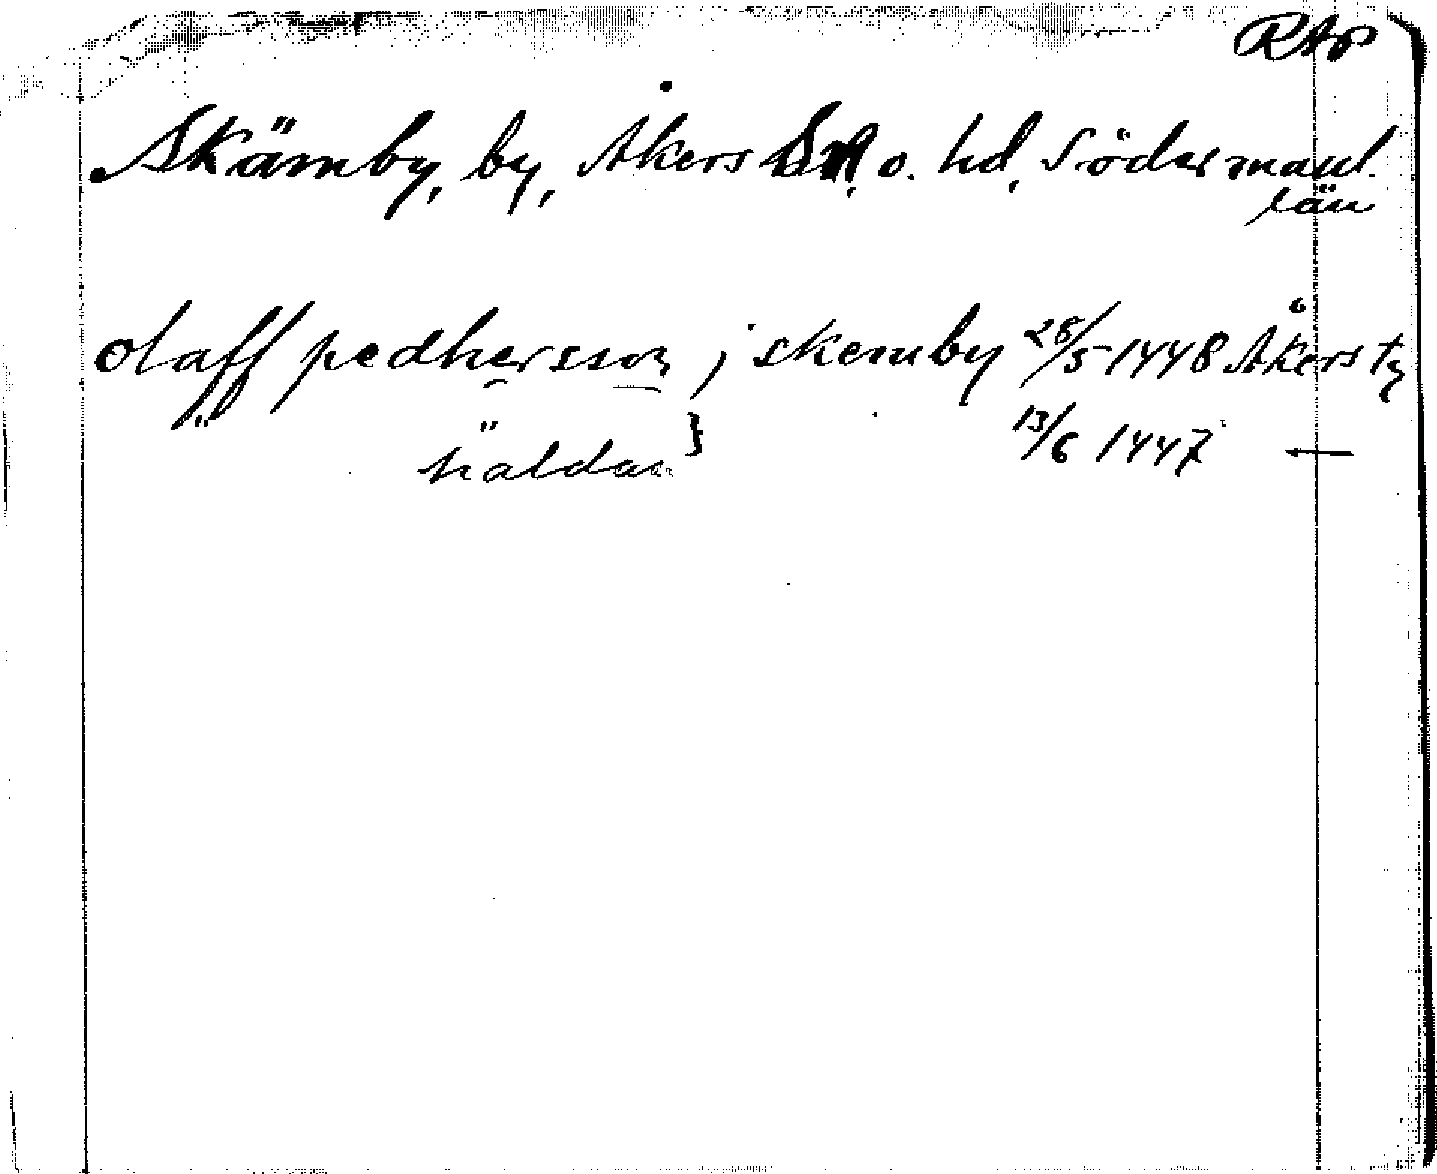 RAp
Skämby, by, Åkers sn o. hd, Södermanl.
län
olaff pedhersson j skemby 28/5 1448 Åkers ty
" " haldan } 13/6 1447 —